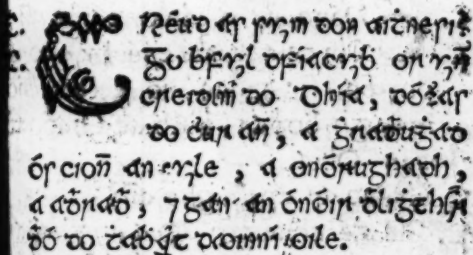 CRéud as suim don aiṫnesi
Gu bfuil dfíacuiḃ oruiñ
creidsin do Dhía, dóṫas
do ċur añ, a ġraḋuġaḋ
ós cioñ an uile, a onórughadh,
a aḋraḋ, ⁊ gan an ónóir
ḋó do ṫaḃairt daoinní oile.